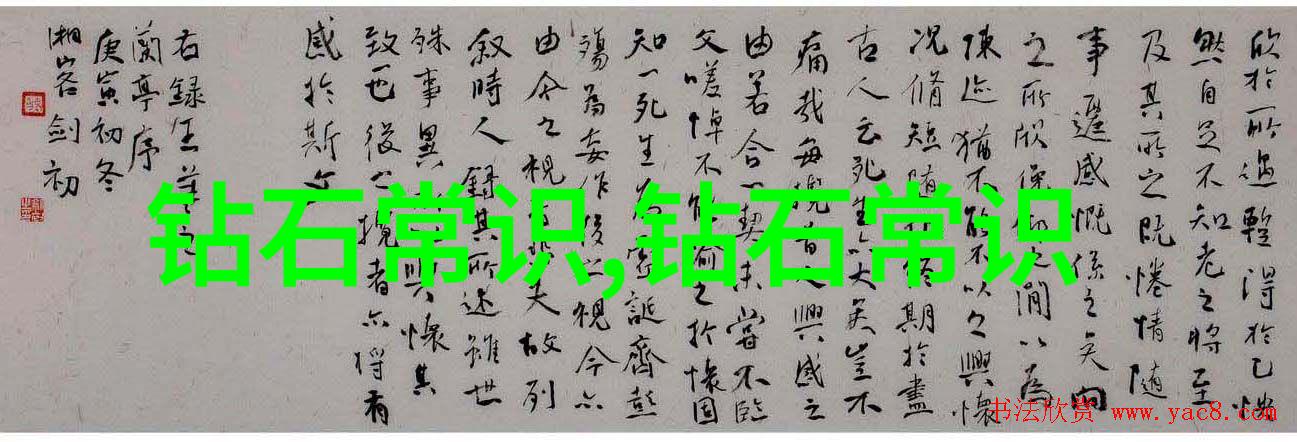 欣於所遇暫得於己快
然自足不知老之將至
及其所之既惓情隨
事遷感慨係之矣向
之所欣俛仰之間以為
陳迹猶不能不以之興懷
況脩短隨化終期於盡
古人云死生亦大矣豈不
痛哉每攬昔人興感之
由若合一契未嘗不臨
文嗟悼不能喻之於懷固
知一死生為虛誕齊彭
殤為妄作後之視今亦
由今之視昔悲夫故列
敘時人錄其所述雖世
殊事異所以興懷其
致一也後之攬者亦將有
感於斯文
右録王羲之
蘭亭序
庚寅初冬
湘客剑初
钻石常识,钻石常识
书法欣赏 www.yac8.com